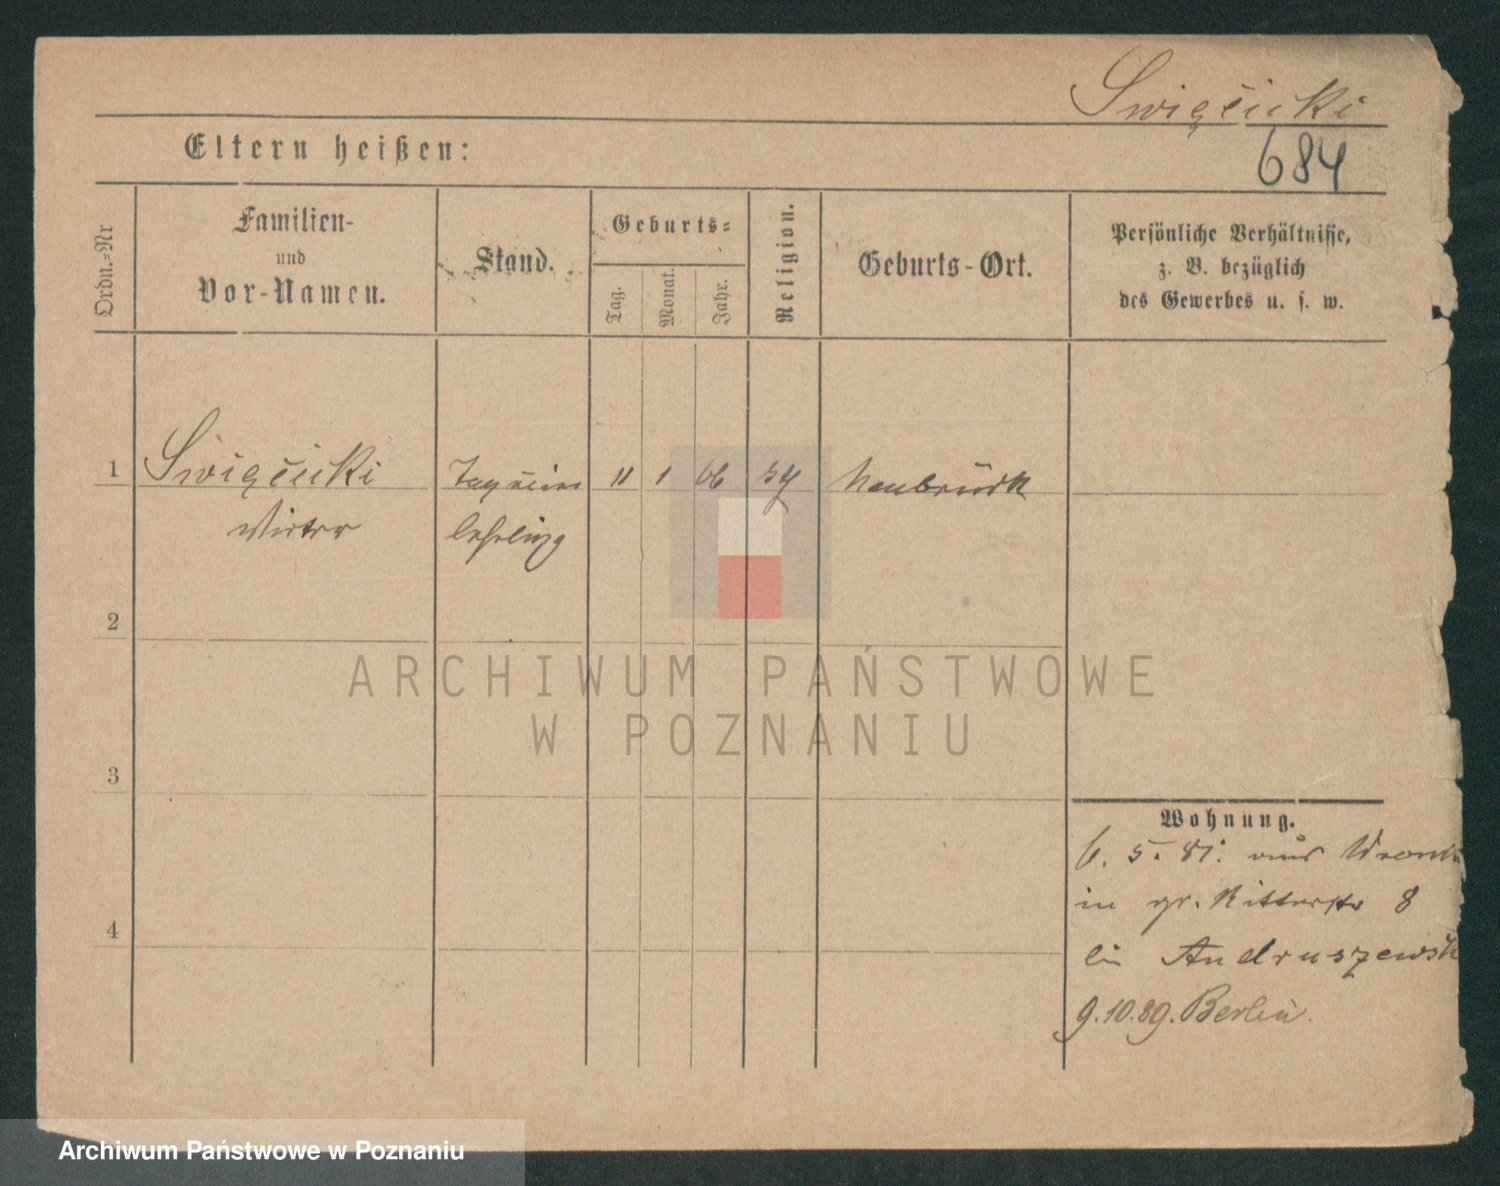 Święcicki
684
Eltern heißen:
Ordn.=Nr
Familien-
und
Vor-Namen.
Stand.
Geburts=
Tag.
Monat.
Jahr.
Religion.
Geburts-Ort.
Persönliche Verhältnisse,
z. B. bezüglich
des Gewerbes u. s. w.
1 Święcicki 11 1 66 Neubrück
Victor lehrling
2
3
4
Wohnung.
6. 5. 81. aus Wronke
in gr. Ritterstr 8
bei Andruszewski
9.10.89. Berlin.
ARCHIWUM PAŃSTWOWE
W POZNANIU
Archiwum Państwowe w Poznaniu